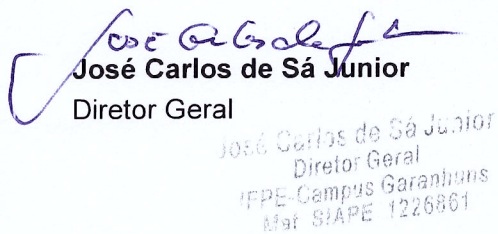 José Carlos de Sá Junior
Diretor Geral
José Carlos de Sá Junior
Diretor Geral
IFPE-Campus Garanhuns
Mat. SIAPE 1226861